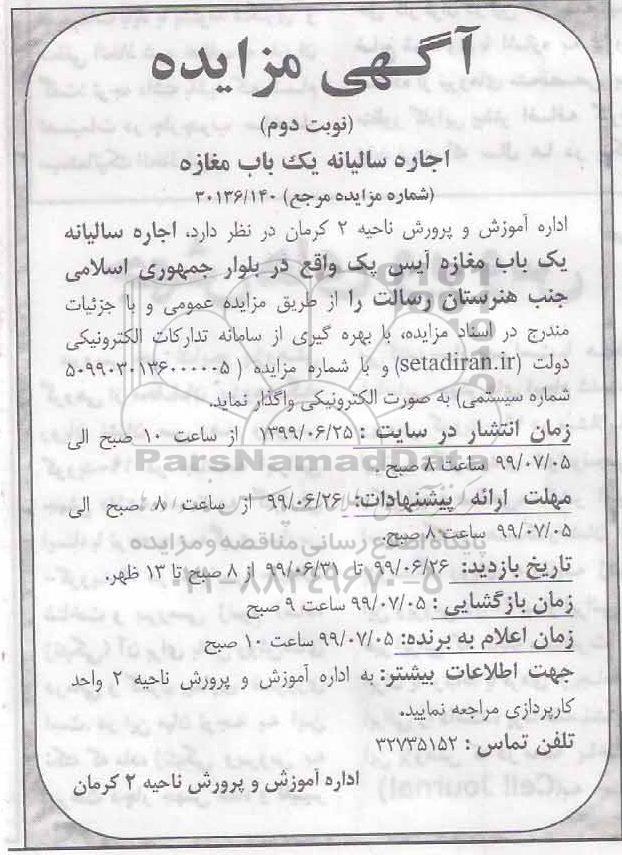 آگهی مزایده
(نوبت دوم)
اجاره سالیانه یک باب مغازه
(شماره مزایده مرجع) ۳۰۱۳۶/۱۴۰
اداره آموزش و پرورش ناحیه ۲ کرمان در نظر دارد، اجاره سالیانه
یک باب مغازه آیس پک واقع در بلوار جمهوری اسلامی
جنب هنرستان رسالت را از طریق مزایده عمومی و با جزئیات
مندرج در اسناد مزایده، با بهره گیری از سامانه تدارکات الکترونیکی
دولت (setadiran.ir) و با شماره مزایده ( ۵۰۹۹۰۳۰۱۳۶۰۰۰۰۰۵
شماره سیستمی) به صورت الکترونیکی واگذار نماید.
زمان انتشار در سایت : ۱۳۹۹/۰۶/۲۵ از ساعت ۱۰ صبح الی
۹۹/۰۷/۰۵ ساعت ۸ صبح .
مهلت ارائه پیشنهادات: ۹۹/۰۶/۲۶ از ساعت ۸ صبح الی
۹۹/۰۷/۰۵ ساعت ۸ صبح.
تاریخ بازدید: ۹۹/۰۶/۲۶ تا ۹۹/۰۶/۳۱ از ۸ صبح تا ۱۳ ظهر.
زمان بازگشایی : ۹۹/۰۷/۰۵ ساعت ۹ صبح
زمان اعلام به برنده: ۹۹/۰۷/۰۵ ساعت ۱۰ صبح
جهت اطلاعات بیشتر: به اداره آموزش و پرورش ناحیه ۲ واحد
کارپردازی مراجعه نمایید.
تلفن تماس : ۳۲۷۳۵۱۵۲
اداره آموزش و پرورش ناحیه ۲ کرمان
ParsNamadData
پایگاه اطلاع رسانی مناقصه و مزایده
۰۲۱-۸۸۳۴۹۶۷۰-۵